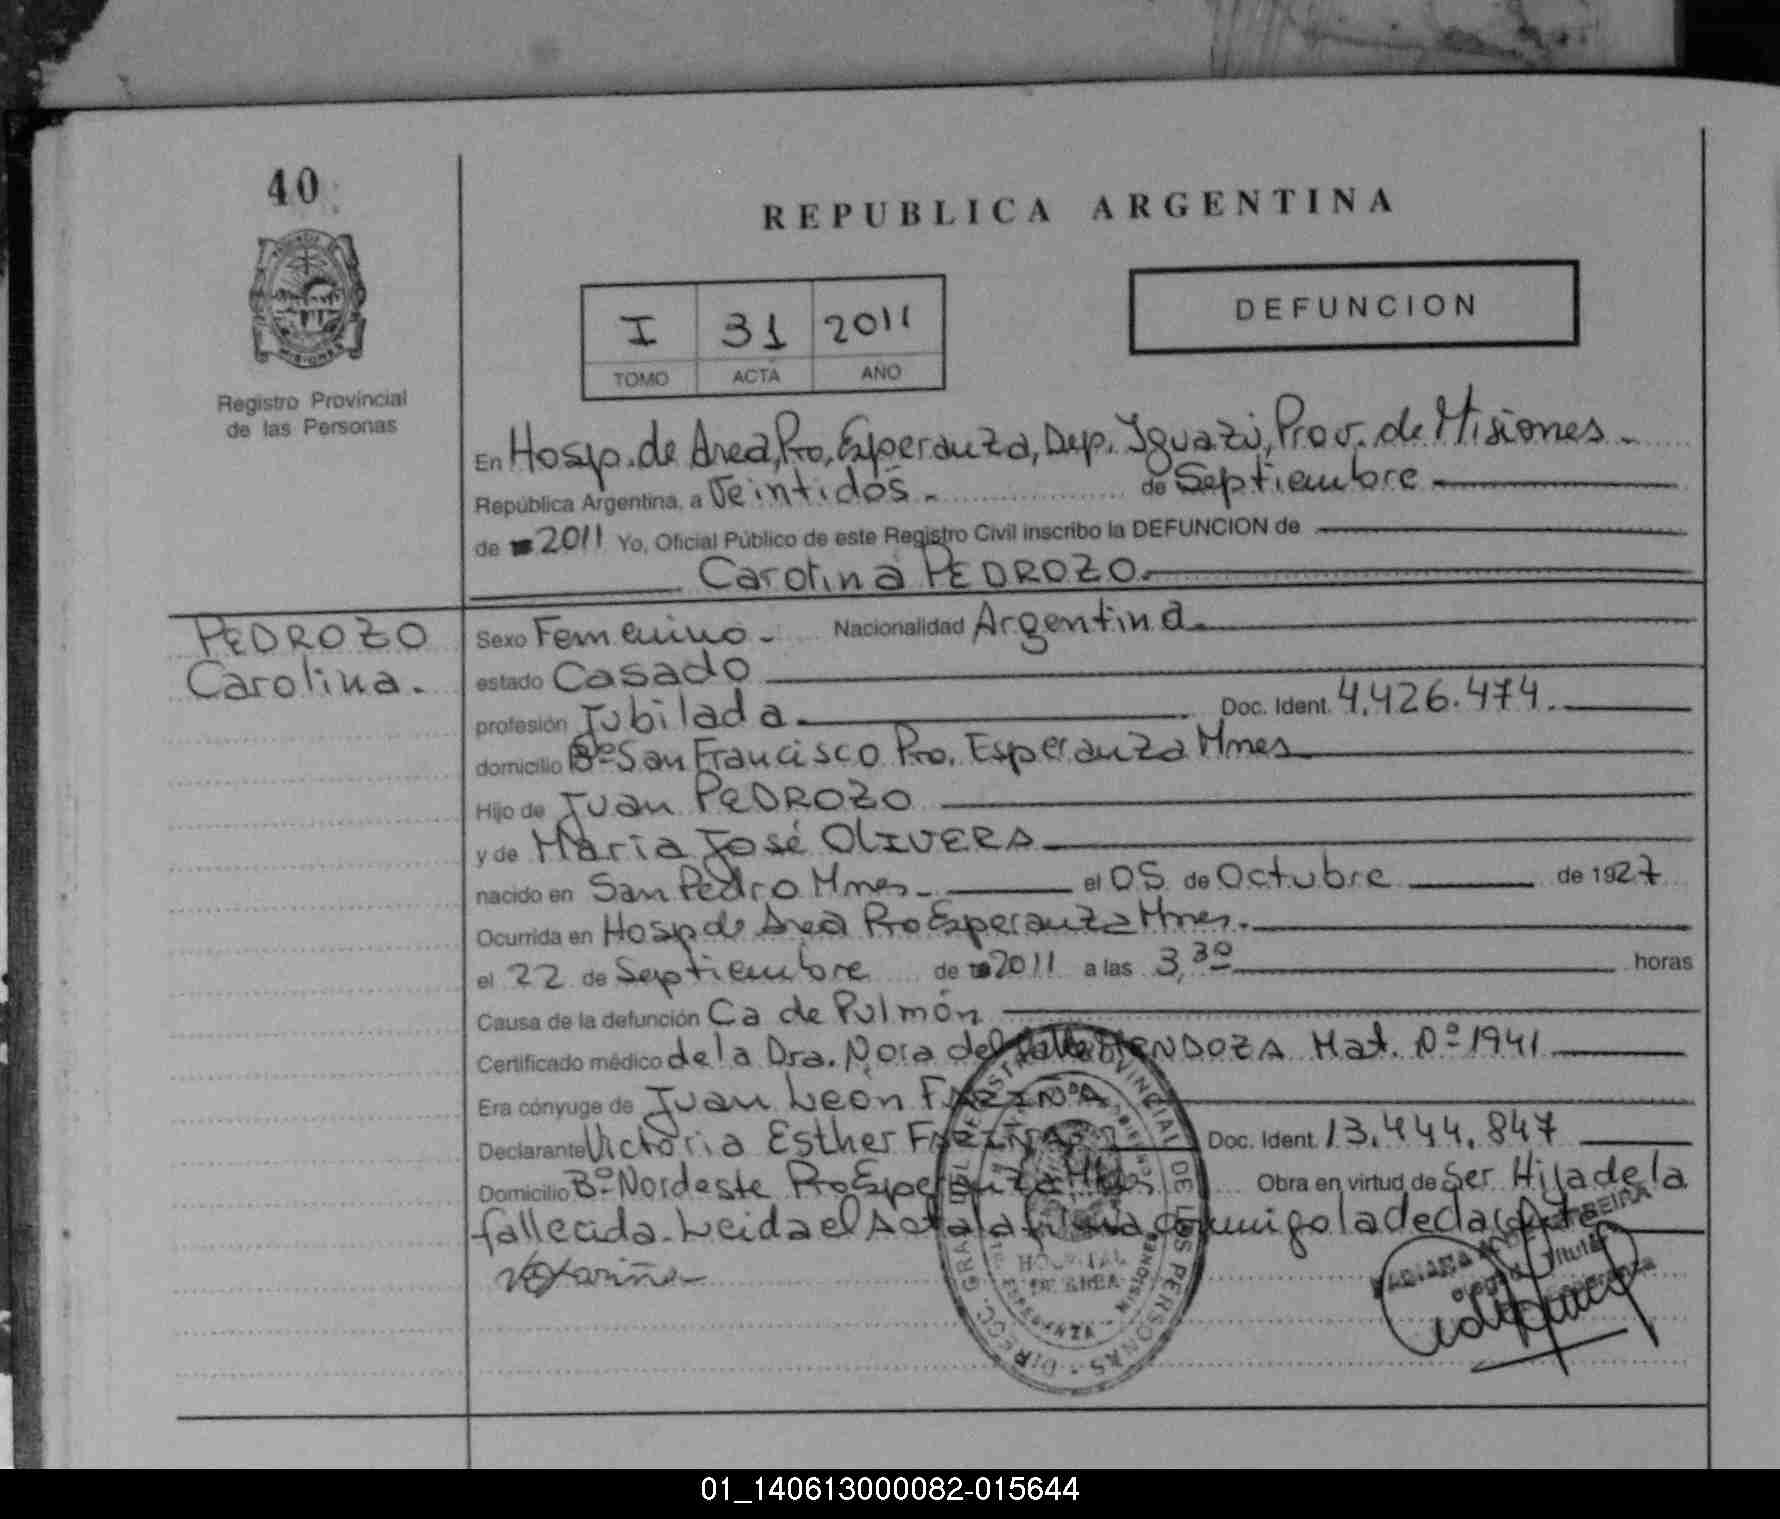 40
REPUBLICA ARGENTINA
I 31 2011
TOMO ACTA AÑO
DEFUNCION
MISIONES
Registro Provincial
de las Personas
En Hosp. de Area, Pto, Esperanza, Dep. Iguazú, Prov. de Misiones
República Argentina, a Veintidós de Septiembre
de 2011 Yo, Oficial Público de este Registro Civil inscribo la DEFUNCION de
Carolina PEDROZO
PEDROZO
Carolina.
Sexo Femenino Nacionalidad Argentina
estado Casado
profesión Jubilada Doc. Ident. 4.426.474.
domicilio Bº San Francisco Pto. Esperanza Mnes
Hijo de Juan PEDROZO
y de Maria José OLIVERA
nacido en San Pedro Mnes el 05 de Octubre de 1927
Ocurrida en Hosp de Area Pto Esperanza Mnes.
el 22 de Septiembre de 2011 a las 3,30 horas
Causa de la defunción Ca de Pulmón
Certificado médico de la Dra. Nora del Valle MENDOZA Mat. Nº 1941
Era cónyuge de Juan León FARIÑA
Declarante Victoria Esther FARIÑA Doc. Ident. 13.444.847
Domicilio Bº Nordeste Pto Esperanza Mnes Obra en virtud de Ser Hija de la
fallecida. Leida el Acta la firma conmigo la declarante
DIRECC. GRAL DE REGISTRO PROVINCIAL DE LAS PERSONAS
HOSPITAL
DE AREA
ESPERANZA - MISIONES
01_140613000082-015644